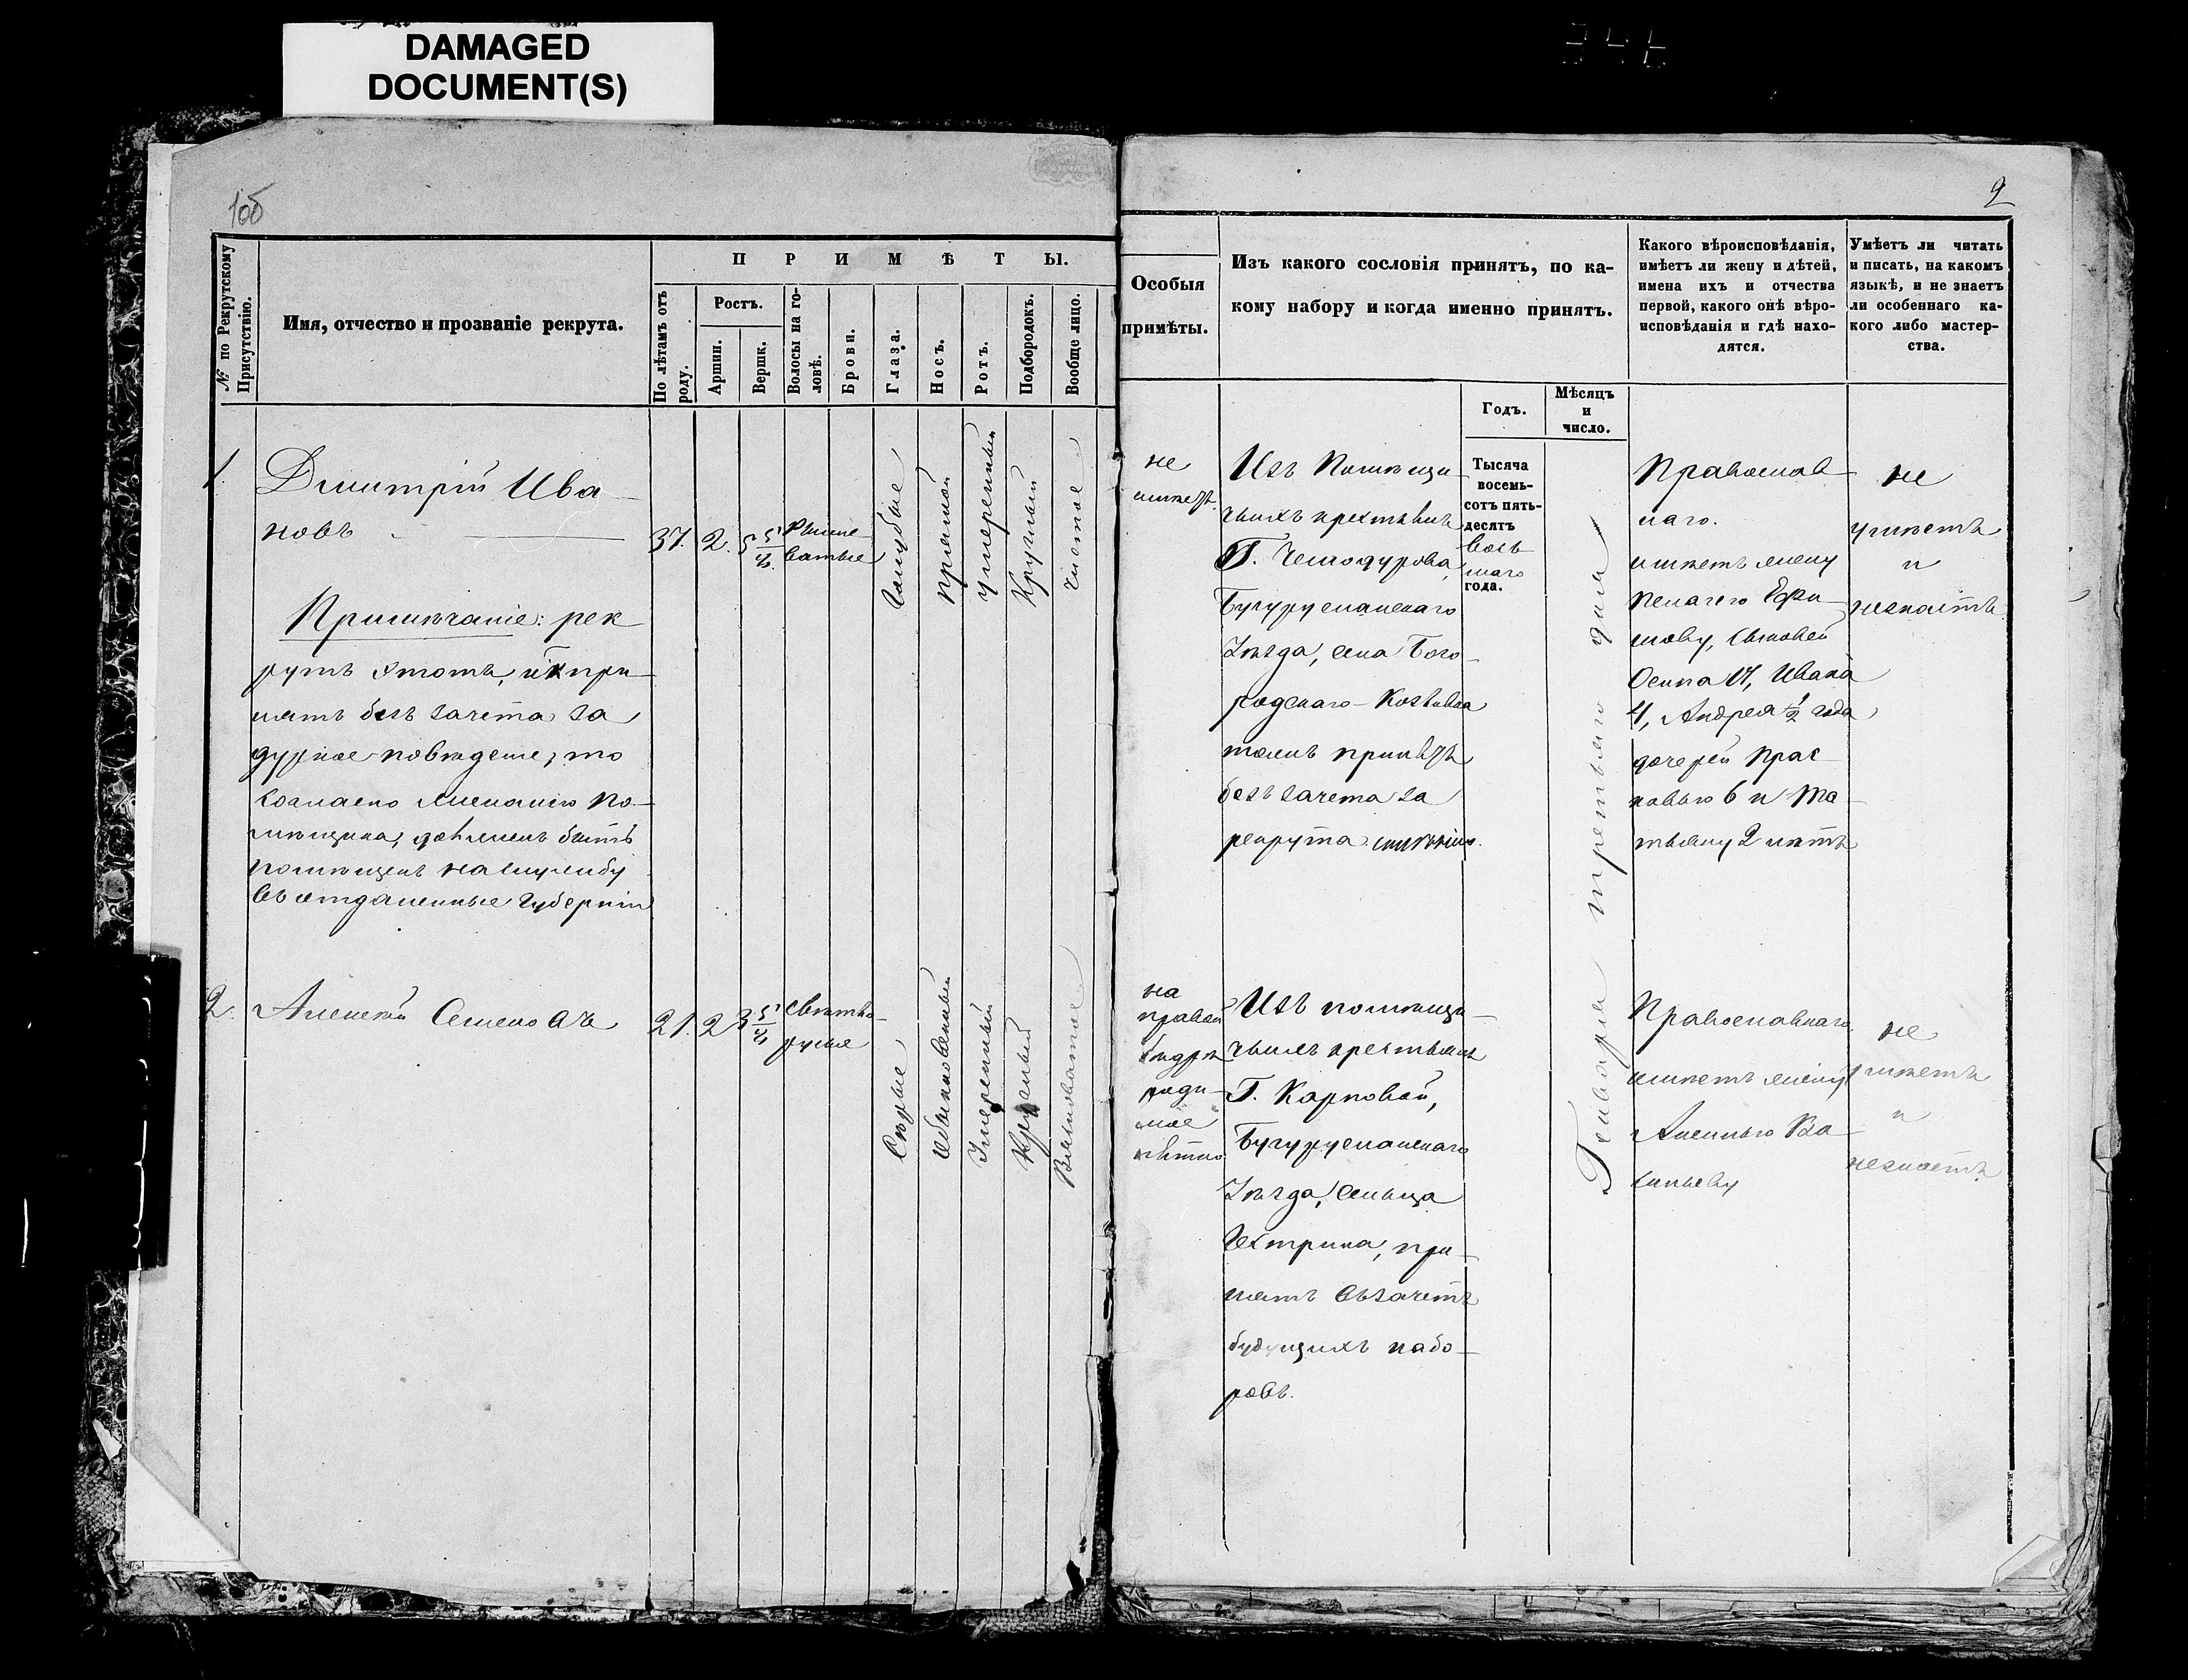 DAMAGED
DOCUMENT(S)
1об
2
№ по Рекрутскому
Присутствію.
Имя, отчество и прозваніе рекрута.
ПРИМѢТЫ.
По лѣтамъ отъ
роду.
Ростъ.
Аршин.
Вершк.
Волосы на го-
ловѣ.
Брови.
Глаза.
Носъ.
Ротъ.
Подбородокъ.
Вообще лицо.
Особыя
примѣты.
Изъ какого сословія принятъ, по ка-
кому набору и когда именно принятъ.
Годъ.
Мѣсяцъ
и
число.
Какого вѣроисповѣданія,
имѣетъ ли жену и дѣтей,
имена ихъ и отчества
первой, какого онѣ вѣро-
исповѣданія и гдѣ нахо-
дятся.
Умѣетъ ли читать
и писать, на какомъ
языкѣ, и не знаетъ
ли особеннаго ка-
кого либо мастер-
ства.
1.
Дмитрій Ива-
новъ
37.
2.
5 5/8
Рыже-
ватые
Голубые
Прямой
Умеренный
Круглый
Чистое
Примѣчаніе: рек-
рутъ этотъ, какъ при-
нятъ безъ зачета за
дурное поведеніе, то
согласно желанію по-
мѣщика, долженъ быть
помѣщенъ на службу
въ отдаленные Губерніи
не
имеетъ.
Изъ Помѣщи-
чьихъ крестьянъ
Г. Чемодурова,
Бугурусланскаго
Уѣзда, села Бого-
родскаго-Козловка
тожъ принятъ
безъ зачета за
рекрута имѣнію.
Тысяча
восемь-
сотъ пять-
десятъ
вось-
маго
года.
Генваря третьяго дня
Православ-
наго.
имѣетъ жену
Пелагею Ефи-
мову, сыновей
Осипа 17, Ивана
4, Андрея 1/2 года
дочерей Прас-
ковью 6 и Та-
тьяну 2 лѣтъ
не
умѣетъ
и
незнаетъ
2.
Алексѣй Семеновъ
21.
2
3 5/8
Свѣтло-
русые
Сѣрые
Обыкновенный
Умеренный
Круглый
Весноватое
на
правой
бедрѣ
роди-
мое
пятно
Изъ помѣщи-
чьихъ крестьянъ
Г. Карповой,
Бугурусланскаго
Уѣзда, сельца
при-
нятъ въ зачетъ
будущихъ набо-
ровъ.
Православнаго
имѣетъ жену
Аксинью Ва-
сильеву
не
умѣетъ
и
незнаетъ